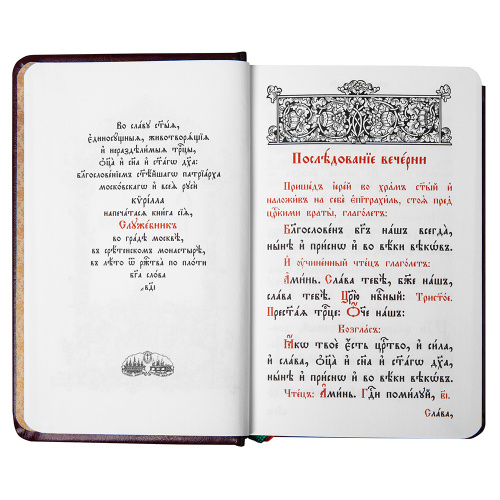 Во сла́вꙋ ст҃ы́ѧ,
є҆диносꙋ́щныѧ, животворѧ́щїѧ
и҆ нераздѣли́мыѧ трⷪ҇цы,
ѻ҆ц҃а̀ и҆ сн҃а и҆ ст҃а́гѡ дх҃а:
бл҃гослове́нїемъ ст҃ѣ́йшагѡ патрїа́рха
моско́вскагѡ и҆ всеѧ̀ рꙋсѝ
кѷрі́лла
напеча́тасѧ кни́га сїѧ̀,
Слꙋже́бникъ
во гра́дѣ москвѣ̀,
въ срѣ́тенскомъ монастырѣ̀,
въ лѣ́то ѿ ржⷭ҇тва̀ по пло́ти
бг҃а сло́ва
Послѣ́дованїе вече́рни
Прише́дъ і҆ере́й во хра́мъ ст҃ы́й и҆
наложи́въ на себѐ є҆пїтрахи́ль, стоѧ̀ пред̾
цр҃кими враты̀, глаго́летъ:
Бл҃гослове́нъ бг҃ъ на́шъ всегда̀,
ны́нѣ и҆ при́снѡ и҆ во вѣ́ки вѣкѡ́въ.
И҆ ᲂу҆чине́нный чте́цъ глаго́летъ:
А҆ми́нь. Сла́ва тебѣ̀, бж҃е на́шъ,
сла́ва тебѣ̀. Цр҃ю̀ нбⷭ҇ный: Трист҃о́е.
Прест҃а́ѧ трⷪ҇це: Ѻ҆́ч҃е на́шъ:
Возгла́съ:
Ꙗ҆́кѡ твоѐ є҆́сть црⷭ҇тво, и҆ си́ла,
и҆ сла́ва, ѻ҆ц҃а̀ и҆ сн҃а и҆ ст҃а́гѡ дх҃а,
ны́нѣ и҆ при́снѡ и҆ во вѣ́ки вѣкѡ́въ.
Чте́цъ: А҆ми́нь. Гдⷭ҇и поми́лꙋй, в҃і.
Сла́ва,